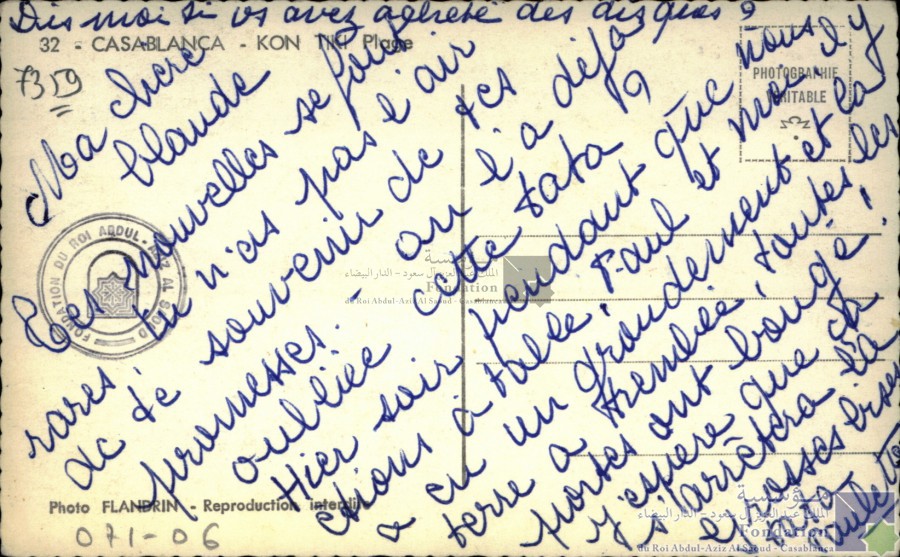 Dis moi si vs avez acheté des disques ?
32 - CASABLANCA - KON TIKI Plage
7359
PHOTOGRAPHIE
VÉRITABLE
Ma chère
Claude
Tes nouvelles se font
rares, tu n'as pas l'air
de te souvenir de tes
promesses. - on l'a déjà
oubliée cette tata ?
Hier soir, pendant que nous
étions à table, Paul et moi, il y
a eu un grondement et la
terre a tremblé, toutes les
portes ont bougé !
J'espère que ça
s'arrêtera là
Grosses bises
tata
FONDATION DU ROI ABDUL-AZIZ AL SAOUD
مؤسسة
الملك عبد العزيز آل سعود - الدار البيضاء
Fondation
du Roi Abdul-Aziz Al Saoud - Casablanca
Photo FLANDRIN - Reproduction interdite
071-06
مؤسسة
الملك عبد العزيز آل سعود - الدار البيضاء
Fondation
du Roi Abdul-Aziz Al Saoud - Casablanca